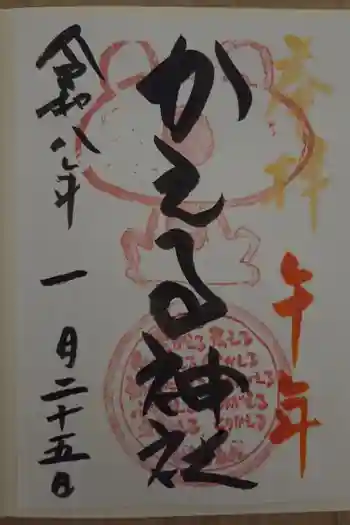 奉拝
午年
かえる神社
令和八年
一月二十五日